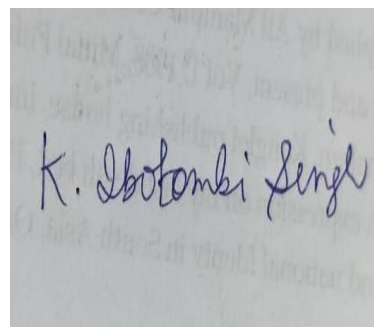 K. Ibotombi Singh